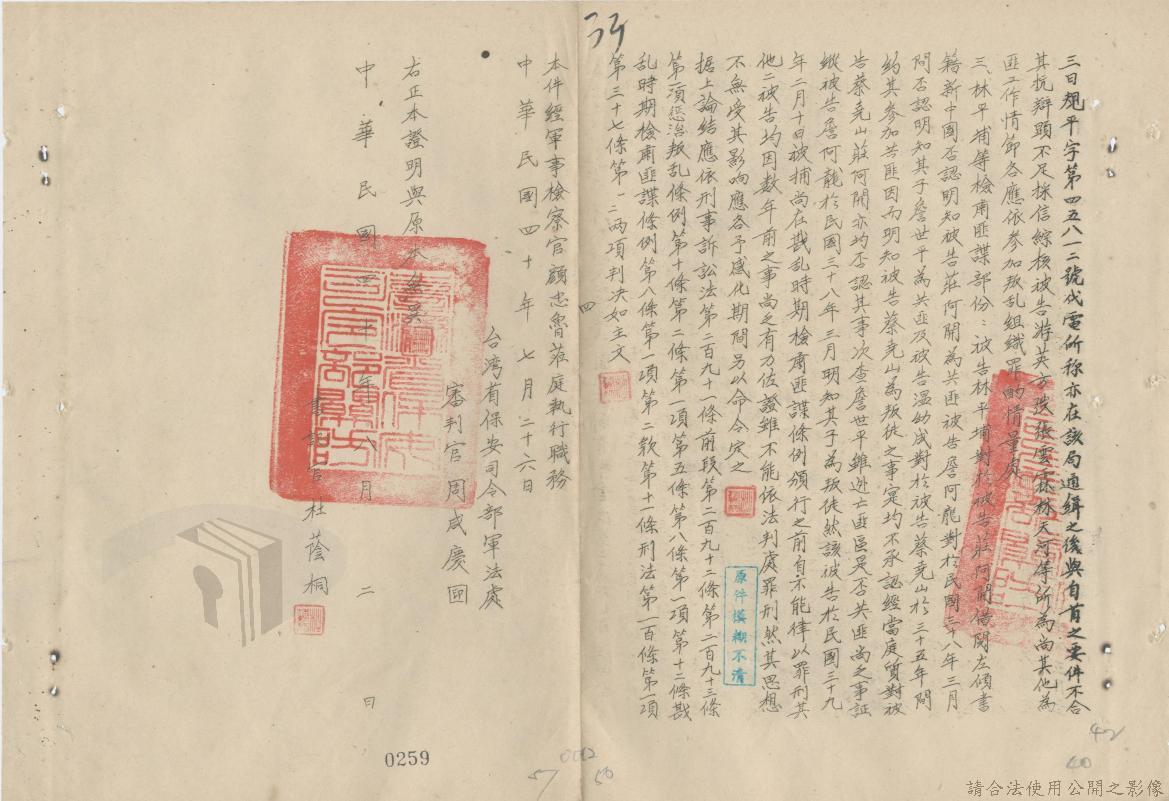 三日覌平字第四五八二號代電所称亦在該局通緝之後與自首之要件不合
其抗辯顕不足採信綜核被告游英方強張雲霖林天河等所為尚其他為
匪工作情節各應依参加叛乱組織罪酌情量處
三、林平埔等檢肅匪諜部份：被告林平埔對於被告莊阿開借閱左傾書
籍新中國否認明知被告莊阿開為共匪被告詹阿龍對於民國三十八年三月
問否認明知其子詹世平為共匪及被告溫幼成對於被告蔡堯山於三十五年間
約其参加共匪因而明知被告蔡堯山為叛徒之事寔均不承認經當庭質對被
告蔡堯山莊阿開亦均否認其事次查詹世平雖逃亡匪區是否共匪尚乏事証
縱被告詹阿龍於民國三十八年三月明知其子為叛徒然該被告於民國三十九
年二月十日被捕尚在戡乱時期檢肅匪諜條例頒行之前自不能律以罪刑其
他二被告均因数年前之事尚乏有力佐證雖不能依法判處罪刑然其思想
不無受其影响應各予感化期間另以命令定之
据上論結應依刑事訴訟法第二百九十一條前段第二百九十二條第二百九十三條
第一項惩治叛乱條例第十條第二條第一項第五條第八條第一項第十二條戡
乱時期檢肅匪諜條例第八條第一項第二款第十一條刑法第一百條第一項
第三十七條第一二两項判決如主文
四
本件經軍事檢察官顧忠魯蒞庭執行職務
中華民國四十年七月二十六日
台湾省保安司令部軍法處
審判官周咸慶
右正本證明與原本無異
中華民國四十年八月二日
書記官杜蔭桐
原件模糊不清
0259
57
50
42
40
請合法使用公開之影像